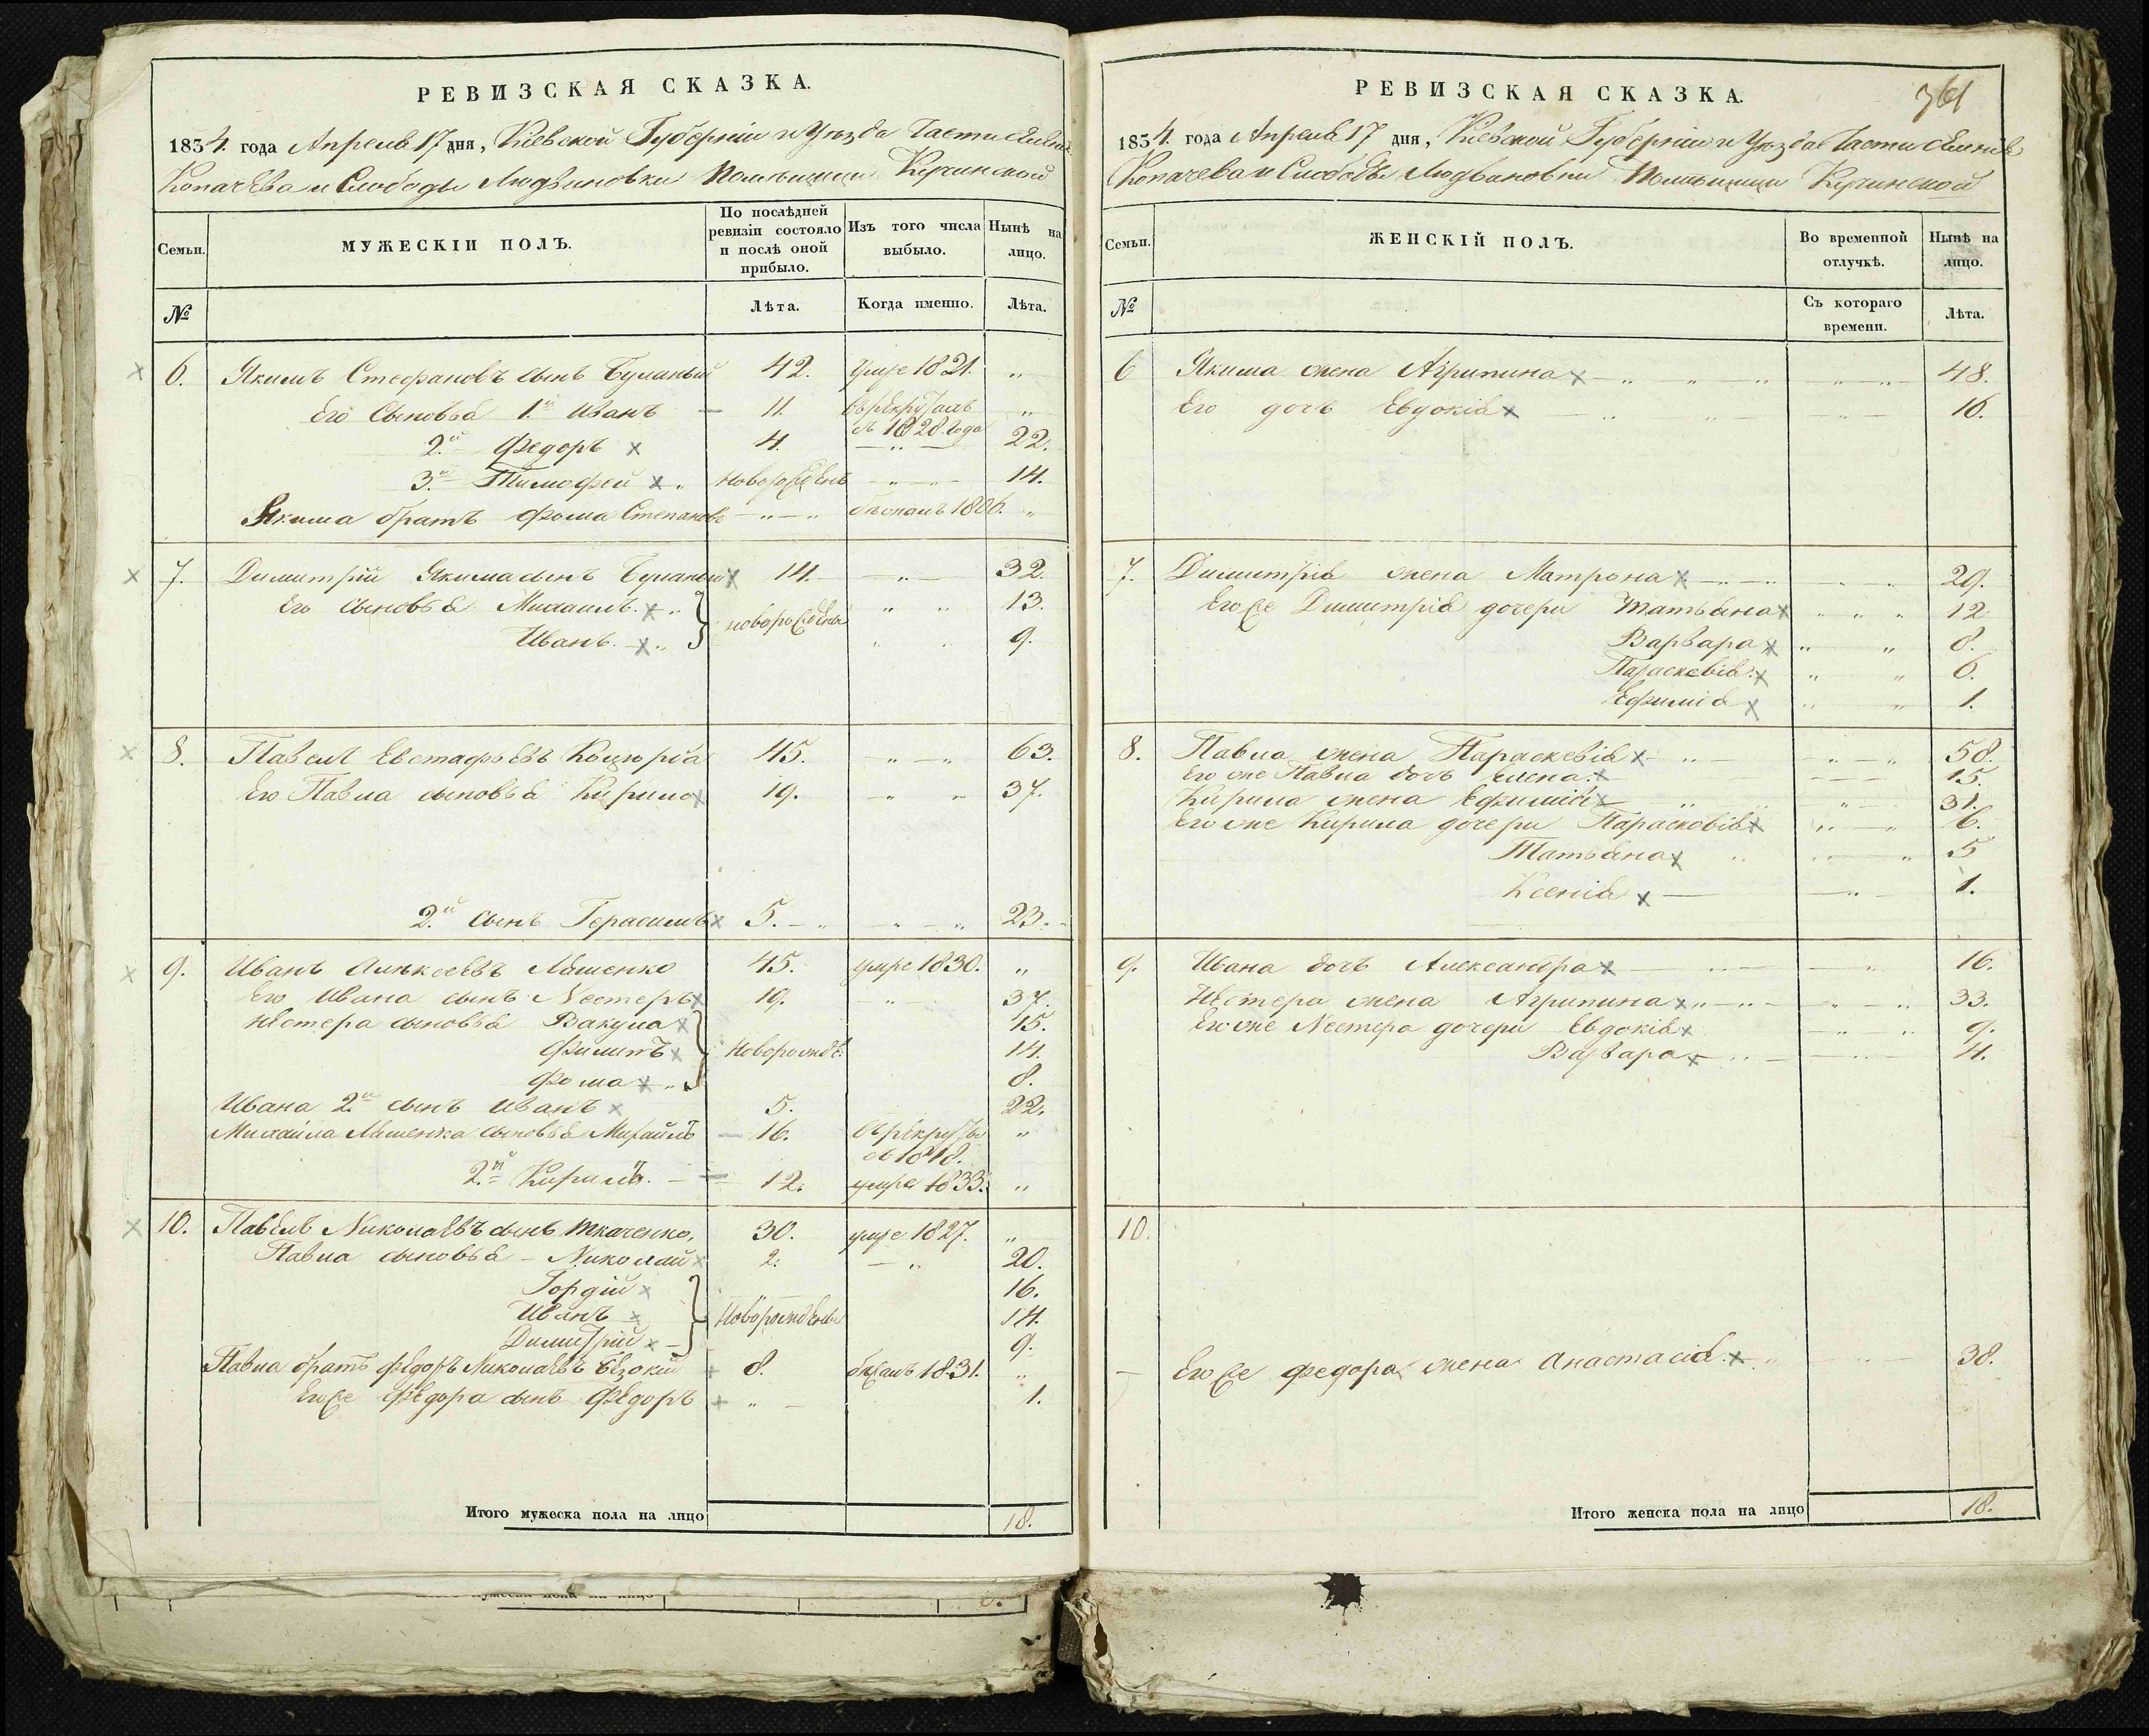 РЕВИЗСКАЯ СКАЗКА.
1834. года Апреля 17 дня, Кіевской Губерніи и Уезда Части
Копачева и Слободы Людвиновки Помещицы
Семьи.
МУЖЕСКІИ ПОЛЪ.
По послѣдней ревизіи состояло и послѣ оной прибыло.
Изъ того числа выбыло.
Нынѣ на лицо.
№
Лѣта.
Когда именно.
Лѣта.
6. Якимъ Стефановъ сынъ Буланый 42. умре 1821. „
Его Сыновья 1й Иванъ — 11. въ рекрутахъ съ 1828. года „
2й Федоръ х 4. — „ — 22.
3й Тимофей х „ новорожденъ — „ — 14.
Якима братъ Фома Степановъ — „ — „ бежалъ 1806. „
7. Димитрій Якима сынъ Буланый х 14. — „ — 32.
Его сыновья Михаилъ. х „ новорождены „ „ 13.
Иванъ. х „ „ „ 9.
8. Павелъ Евстафьевъ Коцюріа 45. „ — „ 63.
Его Павла сыновья Кирило х 19. „ „ 37.
2й сынъ Герасимъ х 5. — „ — „ — „ 23.
9. Иванъ Алексеевъ Ляшенко 45. умре 1830. „
Его Ивана сынъ Нестеръ х 19. — „ — 37.
Нестера сыновья Вакула х 15.
Филипъ х новорожде: 14.
Фома х „ 8.
Ивана 2й сынъ Иванъ х 5. 22.
Михайла Ляшенка сыновья Михайлъ — 16. въ рекруты въ 1818. „
2й Кирилъ. — 12. умре 1833. „
10. Павелъ Николаевъ сынъ Ткаченко, 30. умре 1827. „
Павла сыновья — Николай х 2. — „ 20.
Гордій х 16.
Иванъ х новорождены 14.
Димитрій х 9.
Павла братъ Федоръ Николаевъ + 8. бежалъ 1831. „
Егоже Федора сынъ Федоръ + „ — 1.
Итого мужеска пола на лицо 18.
361
РЕВИЗСКАЯ СКАЗКА.
1834. года Апреля 17 дня, Кіевской Губерніи и Уезда Части
Копачева и Слободы Людвиновки Помещицы
Семьи.
ЖЕНСКІЙ ПОЛЪ.
Во временной отлучкѣ.
Нынѣ на лицо.
№
Съ котораго времени.
Лѣта.
6 Якима жена Агрипина х — „ „ „ „ „ 48.
Его дочь Евдокія х — „ „ „ — 16.
7. Димитрія жена Матрона х — „ — „ — „ „ 29.
Егоже Димитрія дочери Татьяна х „ „ „ 12
Варвара х „ „ 8.
Параскевія х „ „ 6.
Ефимія х „ „ 1.
8. Павла жена Параскевія х „ — „ — „ 58.
Его же Павла дочь Елена. х — — — 15.
Кирила жена Ефимія х „ „ „ — 31.
Его же Кирила дочери Парасковія х „ — „ 6.
Татьяна х „ „ „ 5
Ксенія х — — „ — 1.
9. Ивана дочь Александра х — „ — „ 16.
Нестера жена Агрипина х „ — „ — „ — „ 33.
Его же Нестера дочери Евдокія х — „ „ 9.
Варвара х — „ — — „ — 4.
10.
— Егоже Федора жена Анастасія. х „ „ 38.
Итого женска пола на лицо 18.